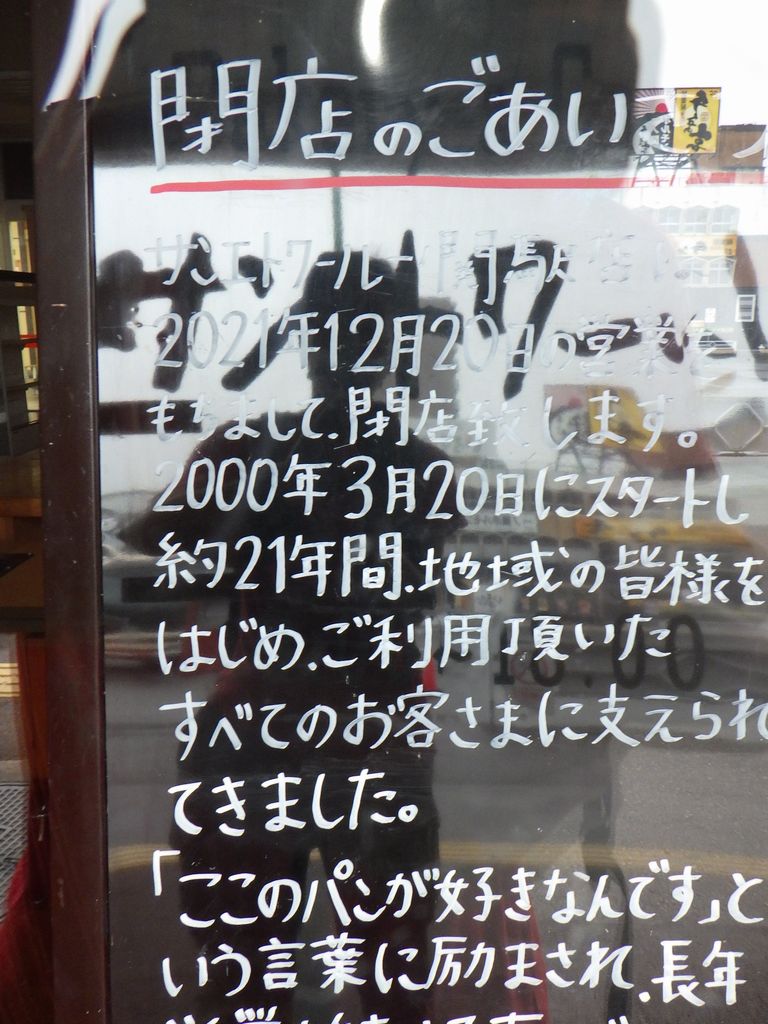 閉店のごあい
サンエトワール一関駅店は
2021年12月20日の営業を
もちまして、閉店致します。
2000年3月20日にスタートし
約21年間、地域の皆様を
はじめ、ご利用頂いた
すべてのお客さまに支えられ
てきました。
「ここのパンが好きなんです」と
いう言葉に励まされ、長年